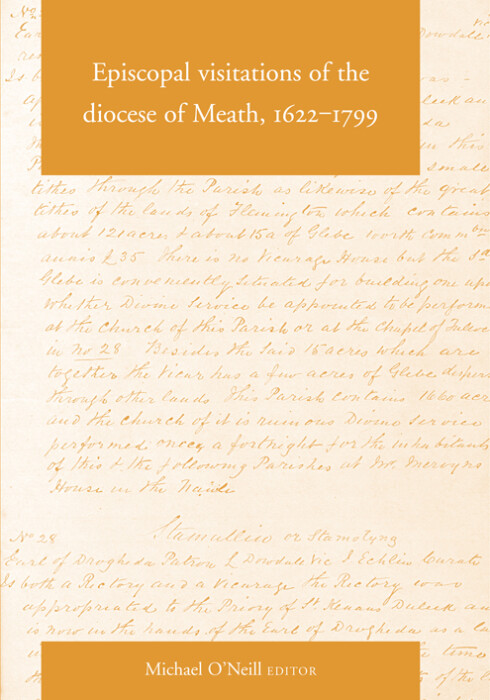 Episcopal visitations of the
diocese of Meath, 1622–1799
tithes through the Parish as likewise of the great
tithes of the lands of Flemington which contains
about 121 acres & about 15a of Glebe worth Comm
annis £35 There is no Vicarage House but the sd
Glebe is conveniently Situated for building one upon
whether Divine Service be appointed to be perform
at the Church of this Parish or at the Chapel of
in No 28 Besides the Said 15 acres which are
together the Vicar has a few acres of Glebe dispers
through other lands This Parish contains 1660 acr
and the church of it is ruinous Divine Service
performed once a fortnight for the inhabitants
of this & the following Parishes at Mr. Mervyns
House in the Naide
No 28
Stamullin or Stamolyng
Earl of Drogheda Patron L Dowdale Vic J Echlin Curate
Is both a Rectory and a Vicarage the Rectory was
appropriated to the Priory of St Kenans Duleek an
is now in the hands of the Earl of Drogheda as a
Michael O'Neill EDITOR